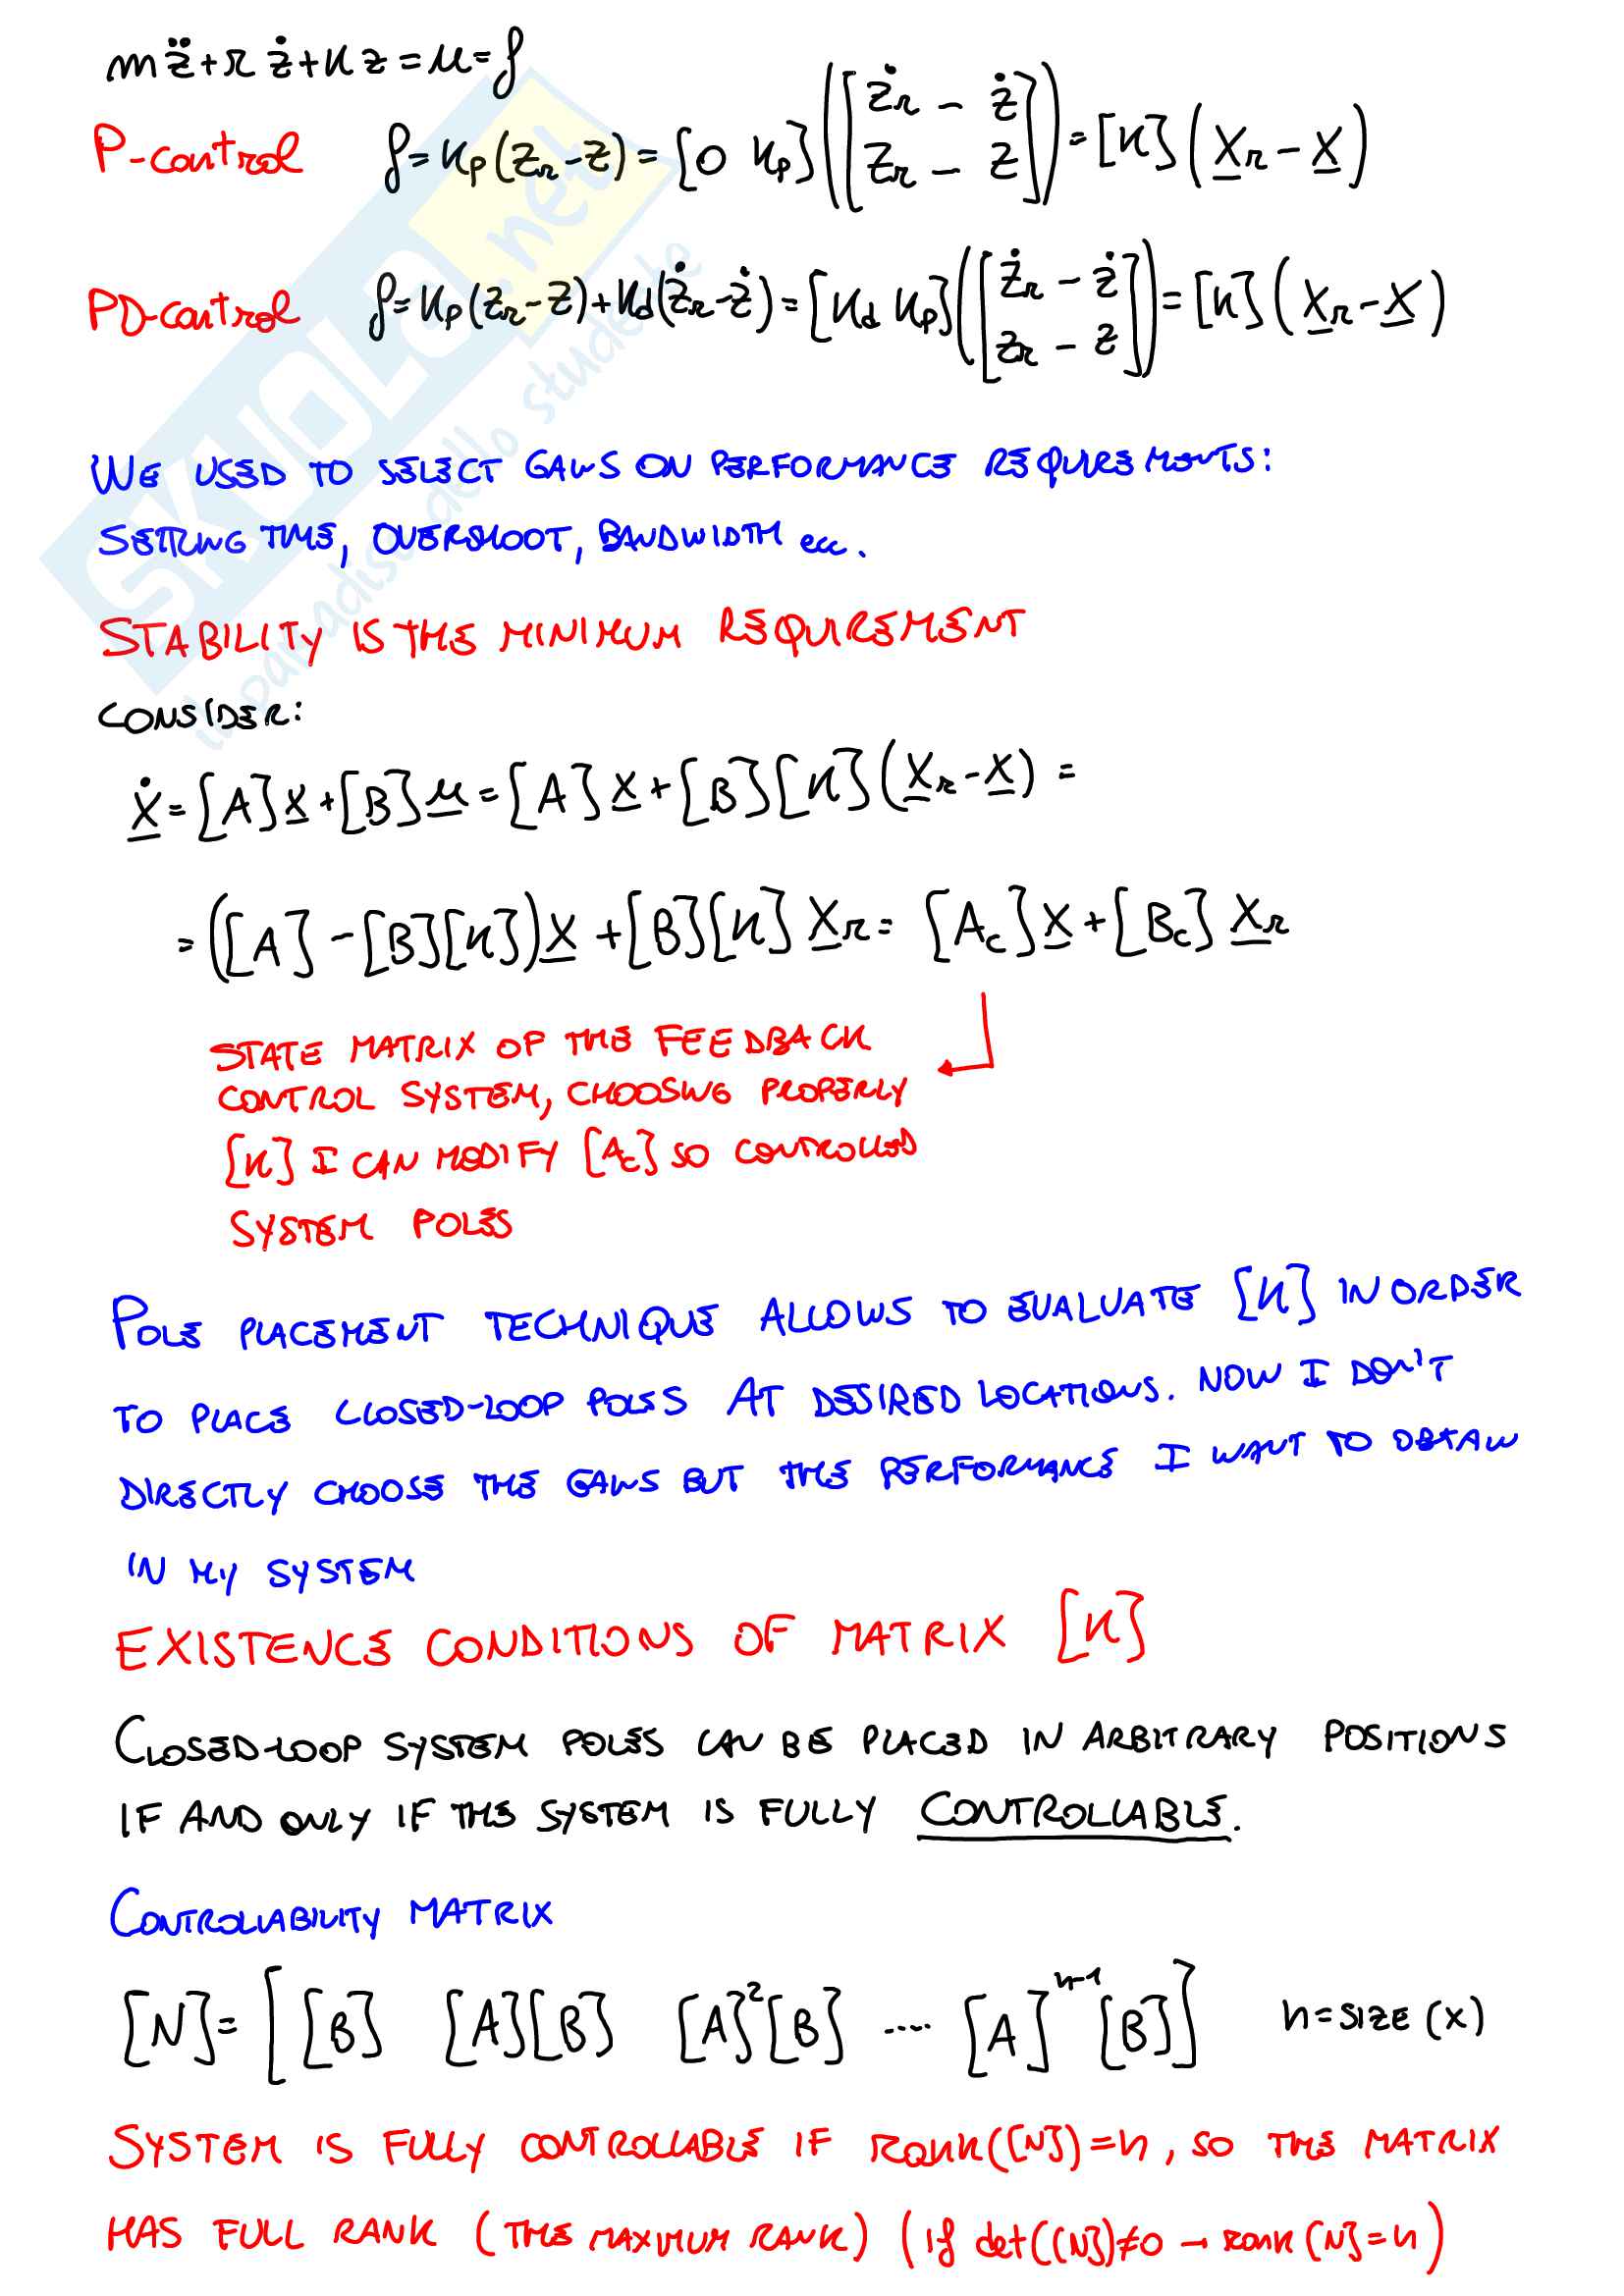 mz̈+rż+kz=u=f
P-control f=kp(zr-z)=[0 kp]([żr-ż zr-z])=[k](xr-x)
PD-control f=kp(zr-z)+kd(żr-ż)=[kd kp]([żr-ż zr-z])=[k](xr-x)
WE USED TO SELECT GAINS ON PERFORMANCE REQUIREMENTS:
SETTLING TIME, OVERSHOOT, BANDWIDTH ecc.
STABILITY IS THE MINIMUM REQUIREMENT
CONSIDER:
ẋ=[A]x+[B]u=[A]x+[B][k](xr-x)=
=([A]-[B][k])x+[B][k]xr=[Ac]x+[Bc]xr
STATE MATRIX OF THE FEEDBACK
CONTROL SYSTEM, CHOOSING PROPERLY
[k] I CAN MODIFY [Ac] SO CONTROLLED
SYSTEM POLES
POLE PLACEMENT TECHNIQUE ALLOWS TO EVALUATE [k] IN ORDER
TO PLACE CLOSED-LOOP POLES AT DESIRED LOCATIONS. NOW I DON'T
DIRECTLY CHOOSE THE GAINS BUT THE PERFORMANCE I WANT TO OBTAIN
IN MY SYSTEM
EXISTENCE CONDITIONS OF MATRIX [k]
CLOSED-LOOP SYSTEM POLES CAN BE PLACED IN ARBITRARY POSITIONS
IF AND ONLY IF THE SYSTEM IS FULLY CONTROLLABLE.
CONTROLLABILITY MATRIX
[N]=[[B] [A][B] [A]²[B] .... [A]ⁿ⁻¹[B]] n=SIZE(x)
SYSTEM IS FULLY CONTROLLABLE IF rank([N])=n, SO THE MATRIX
HAS FULL RANK (THE MAXIMUM RANK) (if det([N])≠0 → rank[N]=n)
SKUOLA.net
il paradiso dello studente